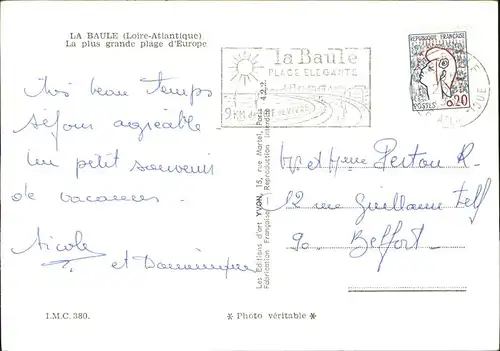 LA BAULE (Loire-Atlantique)
La plus grande plage d'Europe
Très beau temps
séjour agréable
Un petit souvenir
de vacances
Nicole
et Dominique
I.M.C. 380.
Les Editions d'art YVON, 15, rue Martel, Paris
Fabrication Française — Reproduction interdite
* Photo véritable *
la Baule
PLAGE ELEGANTE
9 KM de
REPUBLIQUE FRANÇAISE
POSTES
0,20
Mr et Mme Perton R.
12 rue Guillaume Tell
90 Belfort